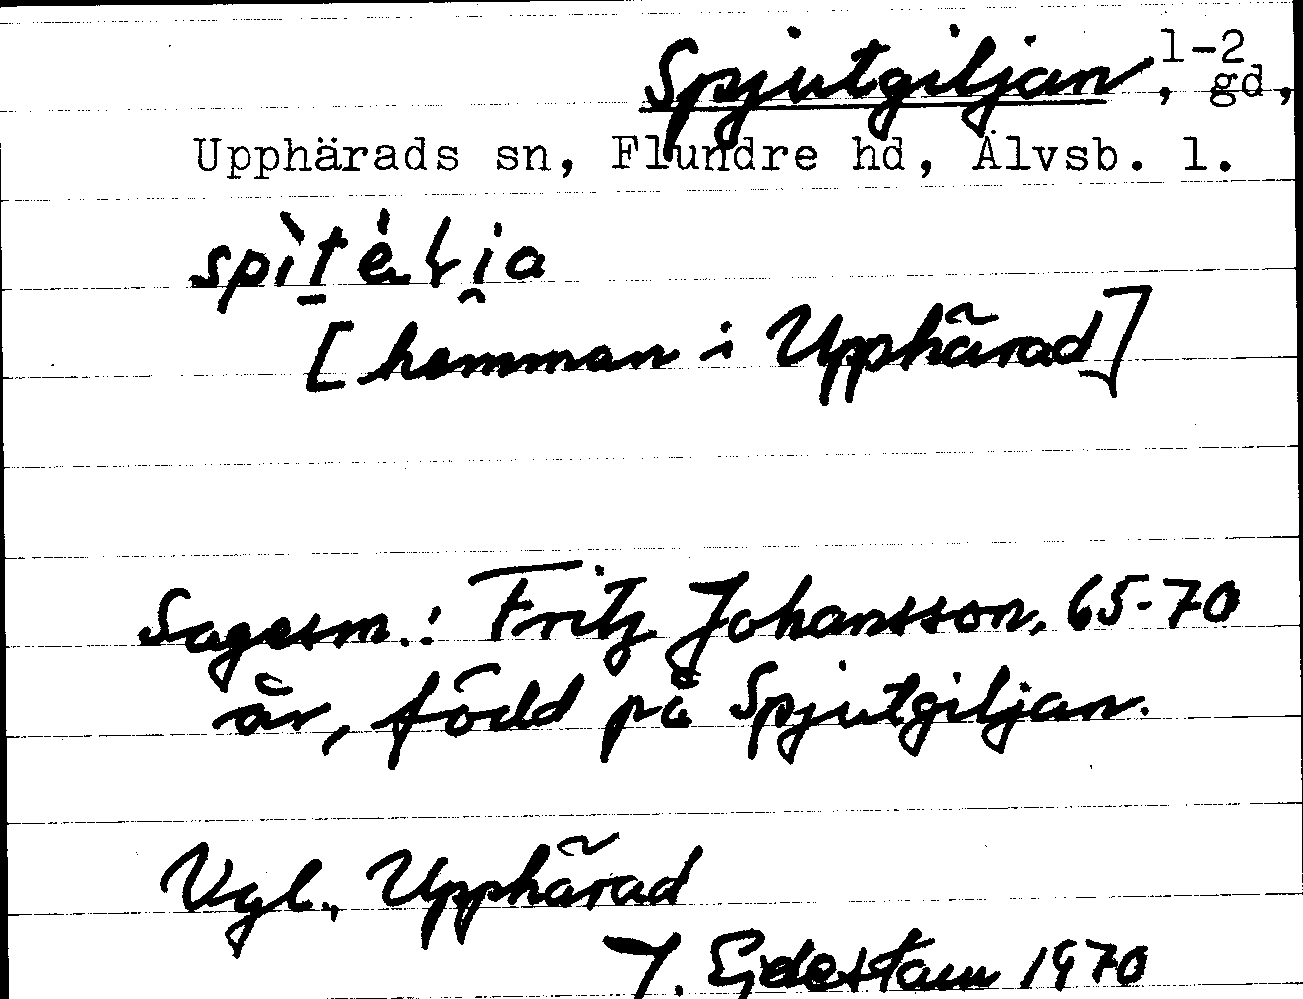 Spjutgiljan, 1-2 gd,
Upphärads sn, Flundre hd, Älvsb. l.
[hemman i Upphärad]
Sagesm.: Fritz Johansson, 65-70
år, född på Spjutgiljan.
Vgl., Upphärad
J. Ejdestam 1970